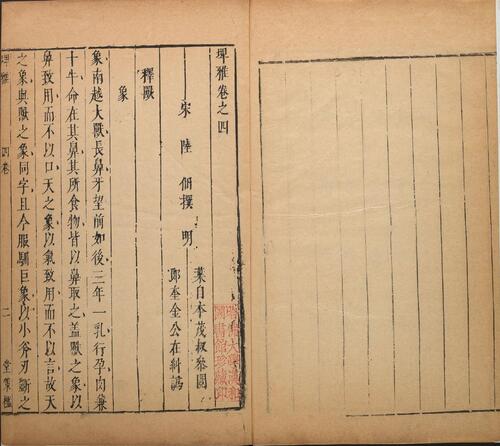 埤雅卷之四
宋 陸 佃撰 明
葉自本茂叔參閱
郎奎金公在糾譌
釋獸
象
象南越大獸長鼻牙望前如後三年一乳行孕肉兼
十牛命在其鼻其所食物皆以鼻取之蓋獸之象以
鼻致用而不以口天之象以氣致用而不以言故天
之象與獸之象同字且今服馴巨象以小斧刃斷之
埤雅 四卷 二 堂策檻